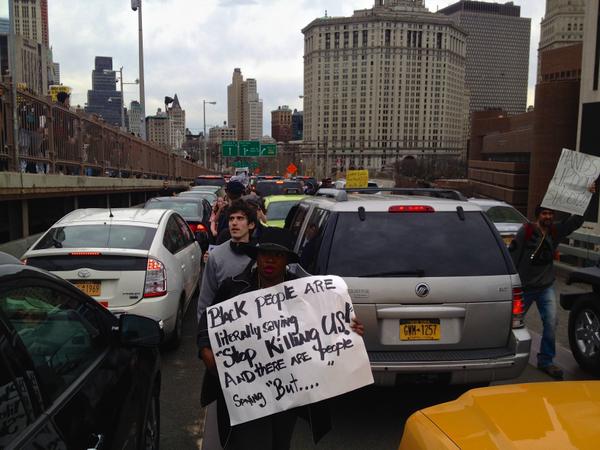 BLACK PEOPLE ARE
literally saying
"Stop Killing US!"
AND tHERE ARE people
SAYING "But....."
GWM-1257